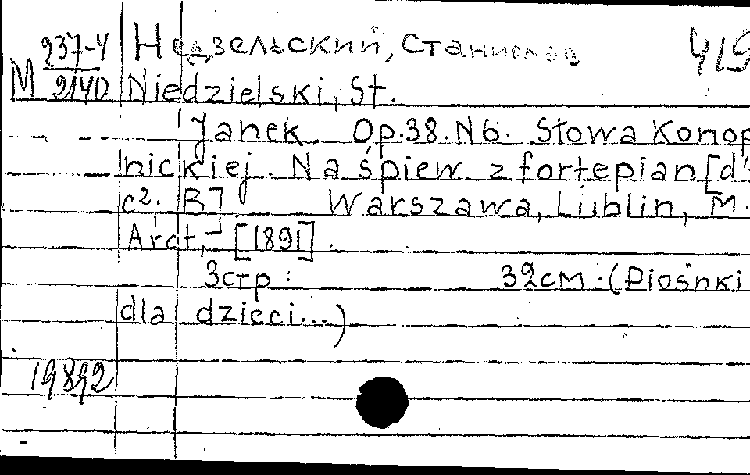 М 937-4 Недзельский, Станислав 419
2140 Niedzielski, St.
Janek Op. 38. N6. Słowa Konop
nickiej. Na śpiew z fortepian [d'-
c2. B] Warszawa, Lublin, M.
Arct, [1891]
3стр. 32см. (Piosnki
dla dzieci...)
19892